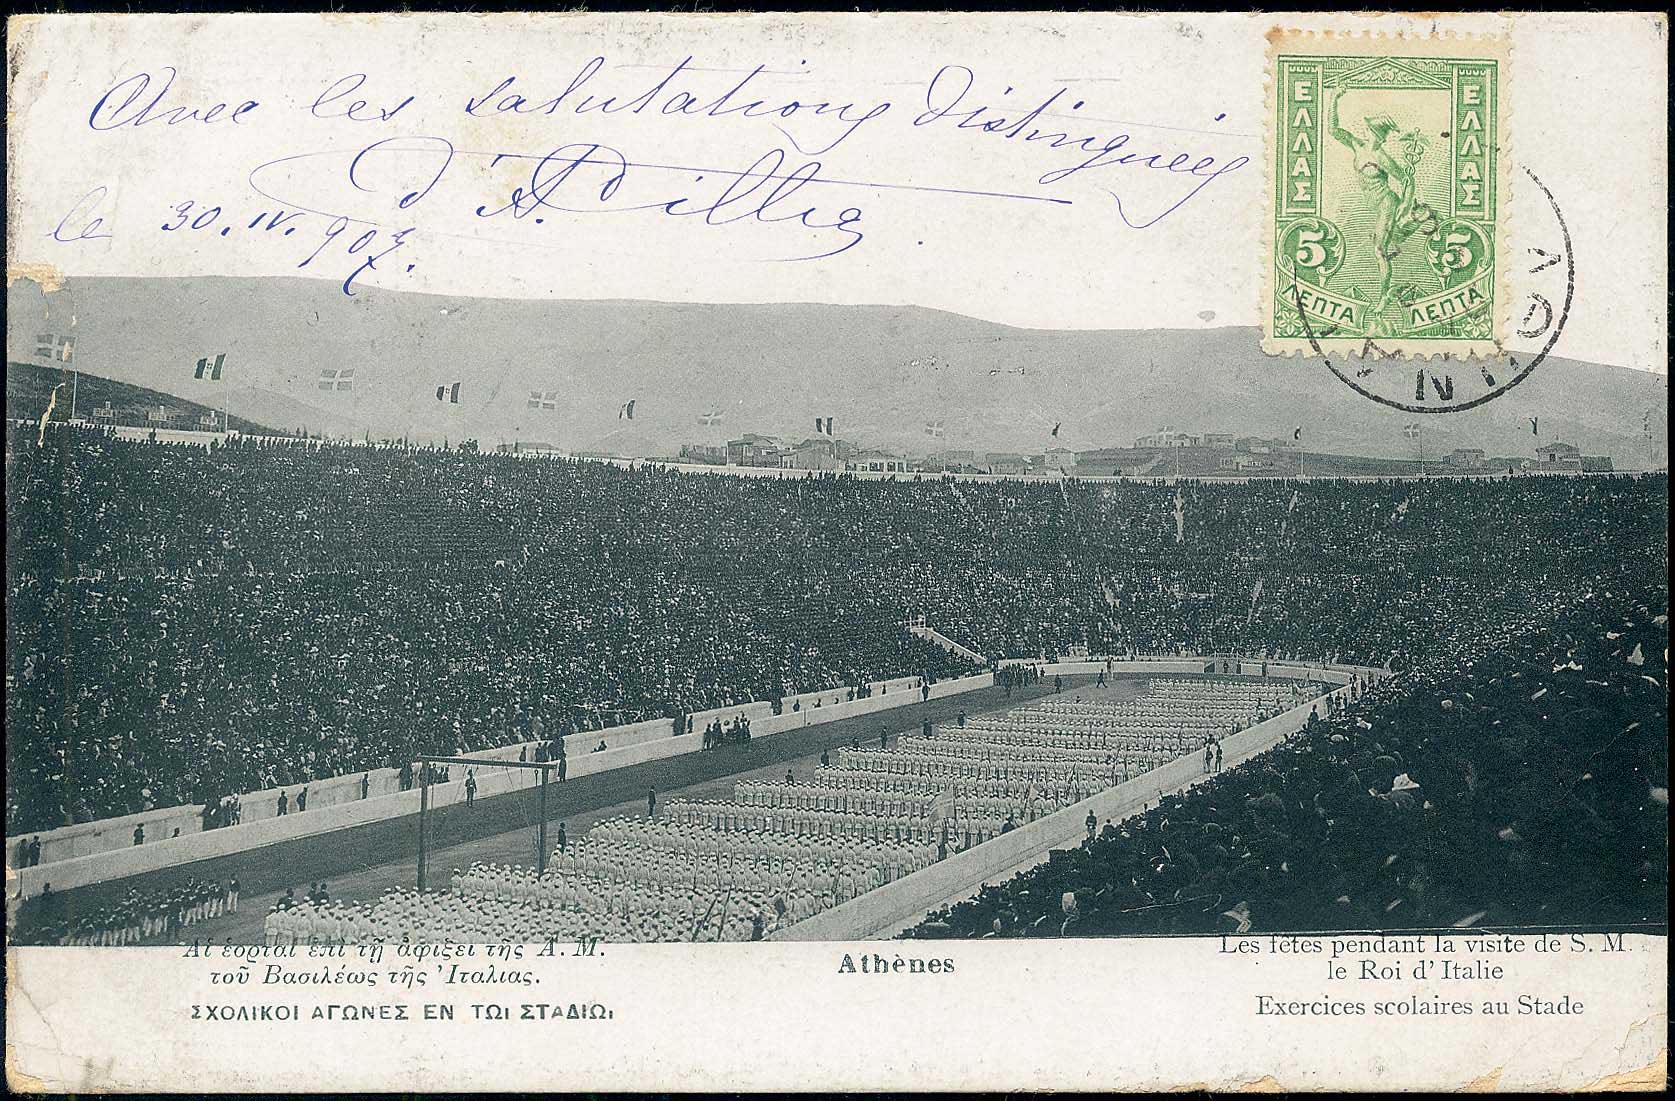 Avec les salutations distinguées
le 30. IV. 907.
ΕΛΛΑΣ
ΕΛΛΑΣ
5
5
ΛΕΠΤΑ
ΛΕΠΤΑ
Αἱ ἑορταὶ ἐπὶ τῇ ἀφίξει τῆς Α. Μ.
τοῦ Βασιλέως τῆς Ἰταλίας.
ΣΧΟΛΙΚΟΙ ΑΓΩΝΕΣ ΕΝ ΤΩΙ ΣΤΑΔΙΩΙ
Athènes
Les fêtes pendant la visite de S. M.
le Roi d'Italie
Exercices scolaires au Stade